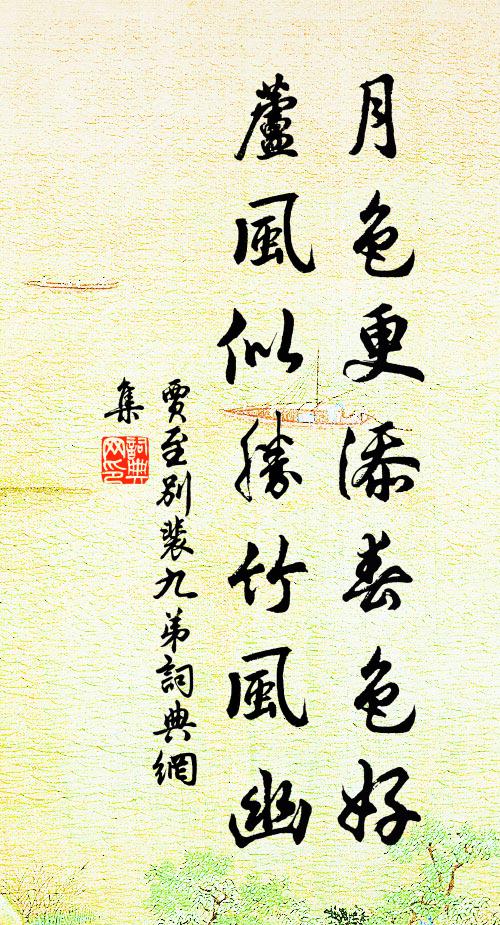 月色更添春色好
蘆風似勝竹風幽
賈至別裴九弟詞典網
集
詞典
网印